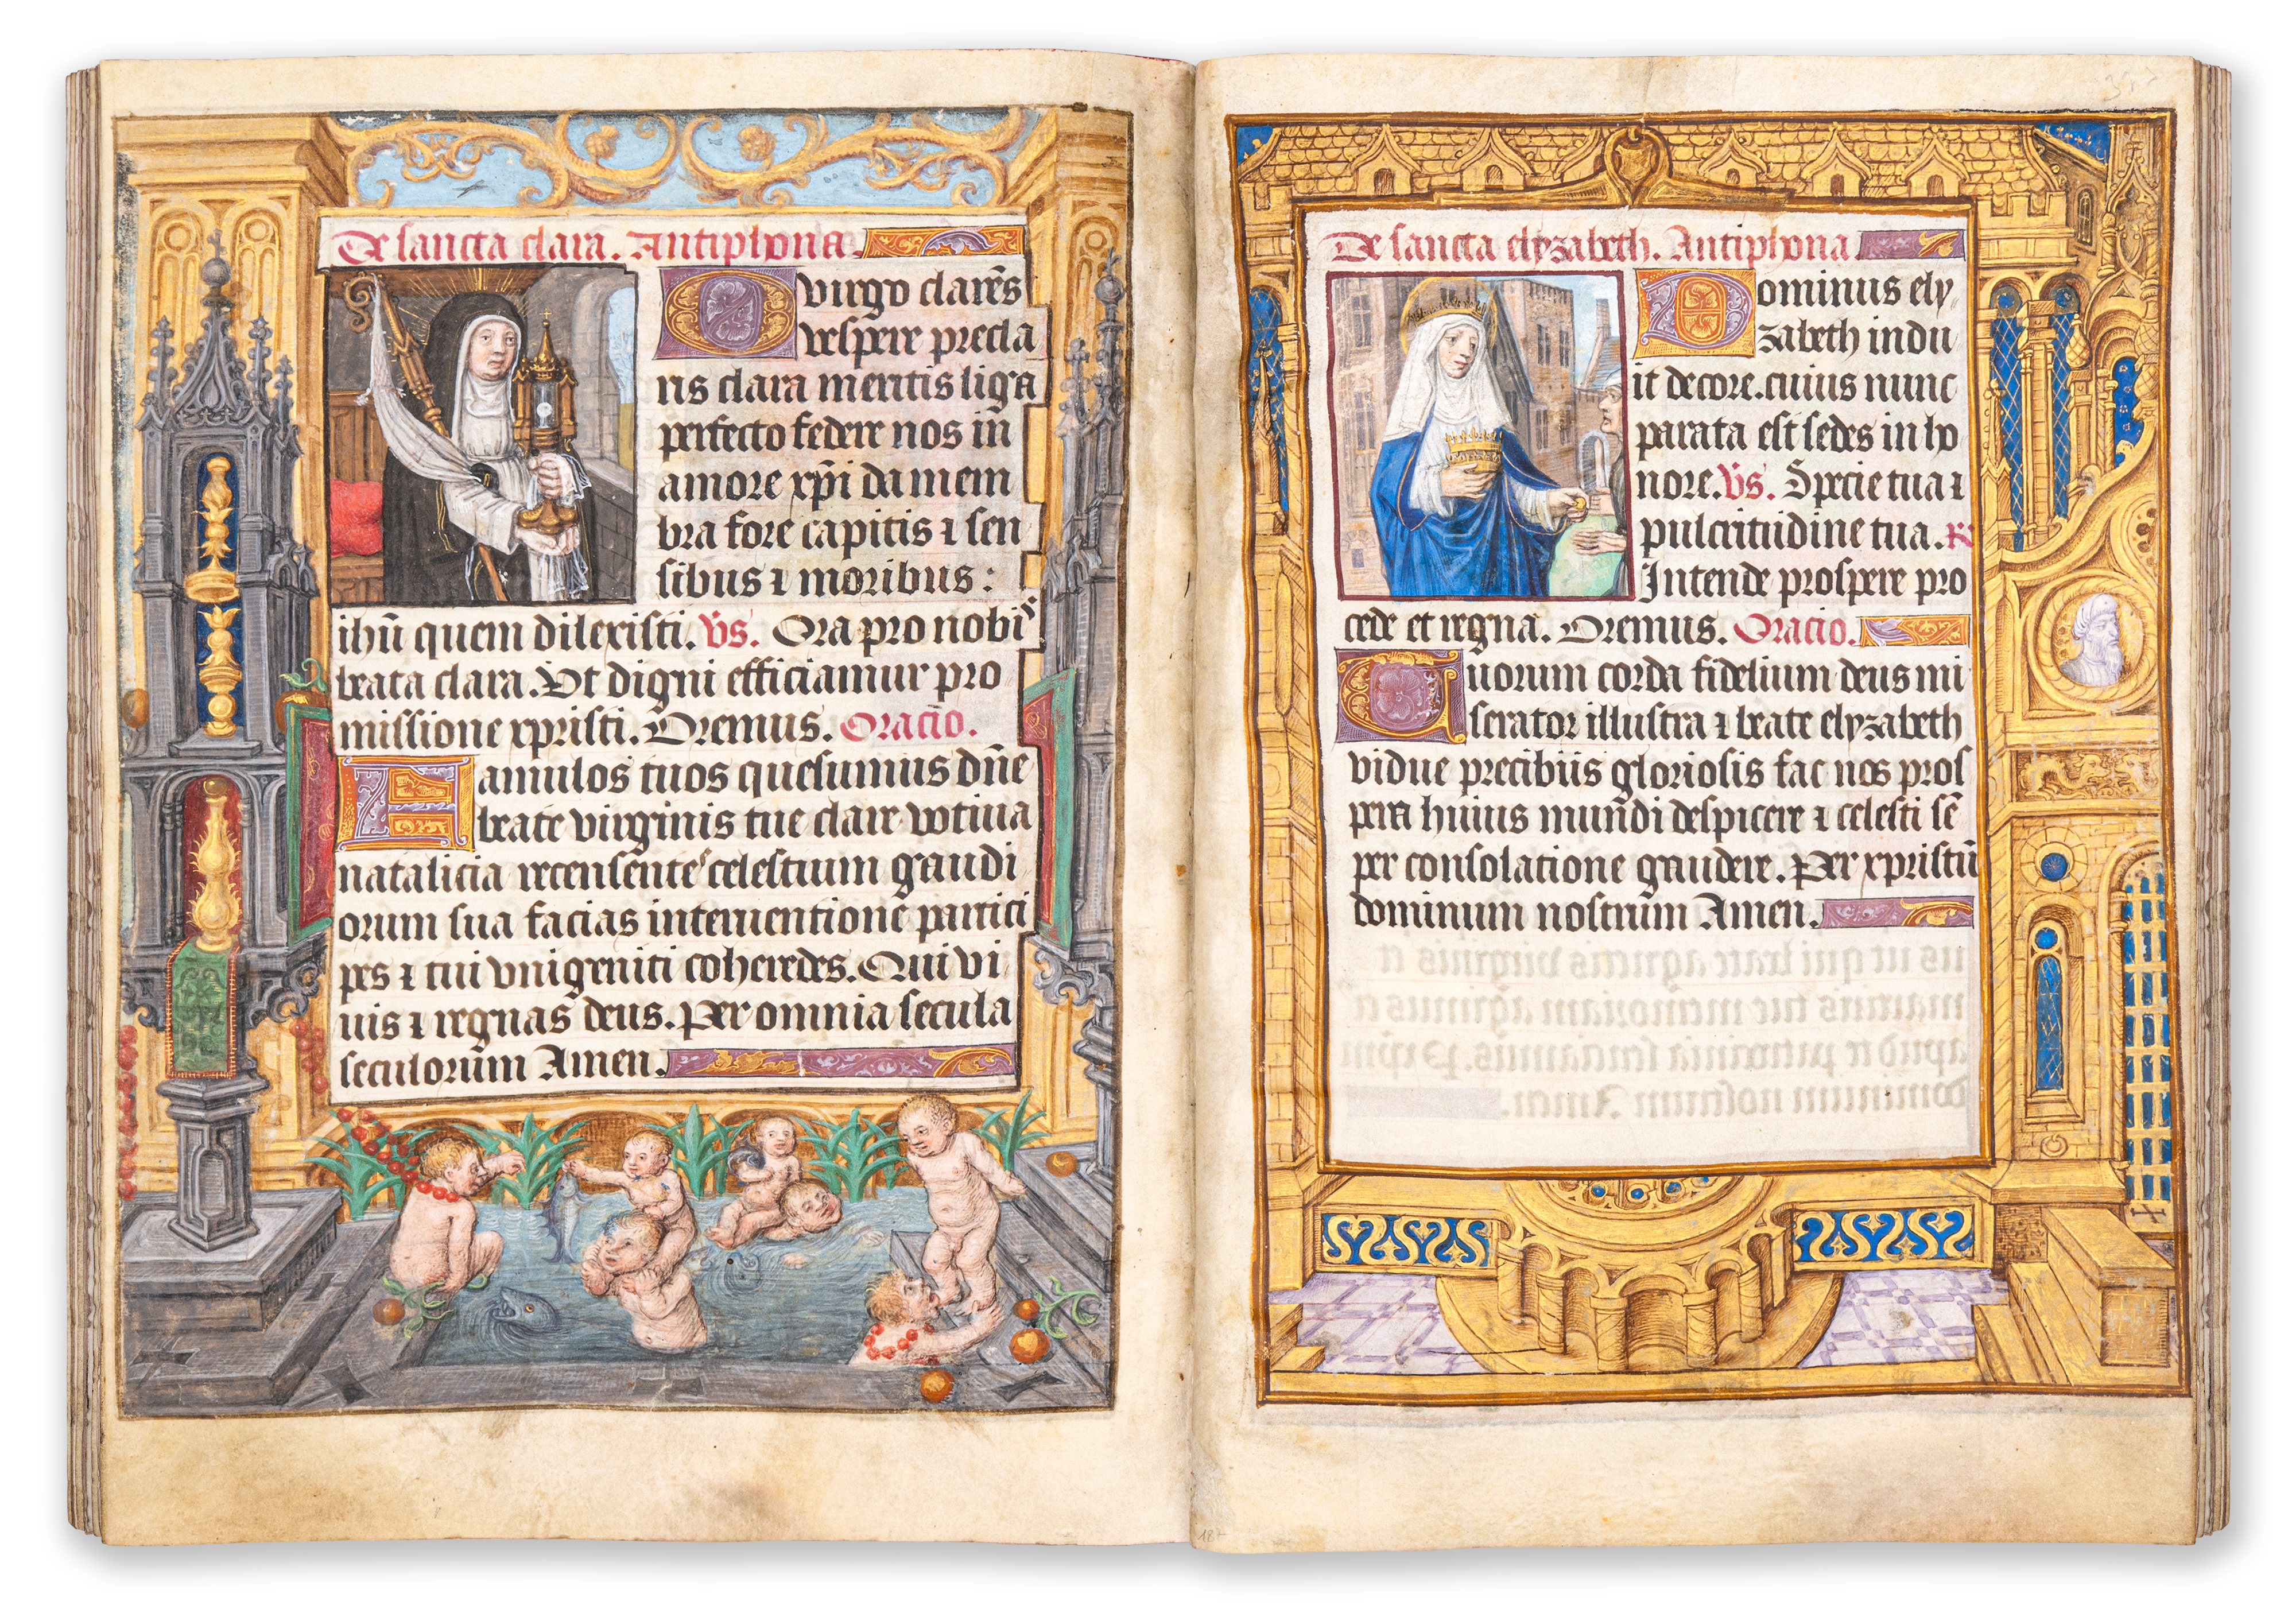 De sancta clara. Antiphona.
O virgo clarẽs
vespere precla
ris clara meritis liga
perfecto federe nos iñ
amore xp̃i da mem
bra fore capitis ⁊ sen
sibus ⁊ moribus:
ihũ quem dilexisti. Vs. Ora pro nobis
beata clara. Vt digni efficiamur pro
missione xpristi. Oremus. Oracio.
Famulos tuos quesumus dñe
beate virginis tue clare votiua
natalicia recensentes celestium gaudi
orum sua facias interuentione partici
pes ⁊ tui vnigeniti coheredes. Qui vi
uis ⁊ regnas deus. Per omnia secula
seculorum Amen.
De sancta elyzabeth. Antiphona
Dominus ely
zabeth indu
it decore. cuius nunc
parata est sedes in ho
nore. Vs. Specie tua ⁊
pulcritudine tua. R
Intende prospere pro
cede et regna. Oremus. Oracio.
Tuorum corda fidelium deus mi
serator illustra ⁊ beate elyzabeth
vidue precibus gloriosis fac nos pros
pera huius mundi despicere ⁊ celesti sẽ
per consolatione gaudere. Per xpristũ
dominum nostrum Amen.
187